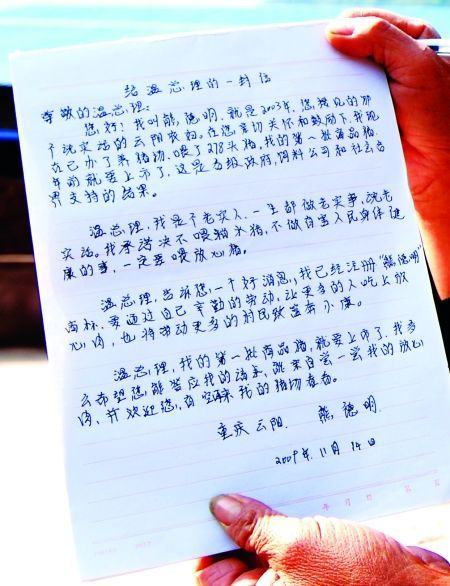 给温总理的一封信
尊敬的温总理:
您好!我叫熊德明,就是2003年,您接见的那
个说实话的云阳农妇。在您亲切关怀和鼓励下,我现
在已办了养猪场,喂了278头猪。我的第一批商品猪,
年前就要上市了,这是各级政府,饲料公司和社会各
界支持的结果。
温总理,我是个老实人,一生都做老实事,说老
实话。我承诺决不喂猪水猪,不做有害人民身体健
康的事,一定要喂放心猪。
温总理,告诉您,一个好消息,我已经注册“熊德明”
商标,要通过自己辛勤的劳动,让更多的人吃上放
心肉,也将带动更多的村民致富奔小康。
温总理,我的第一批商品猪,就要上市了,我多
么希望您,能答应我的请求,就亲自尝一尝我的放心
肉,并欢迎您,有空来我的猪场看看。
重庆云阳 熊德明
2009年11月14日
年 月 日 第 页